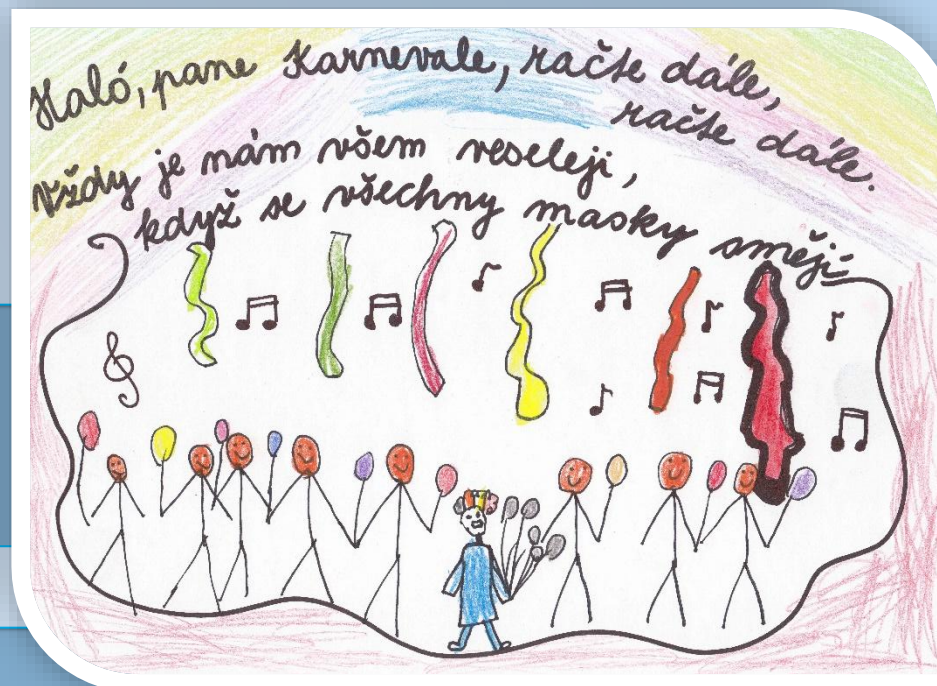 Haló, pane Karnevale, račte dále,
račte dále.
Vždy je nám všem veseleji,
když se všechny masky smějí